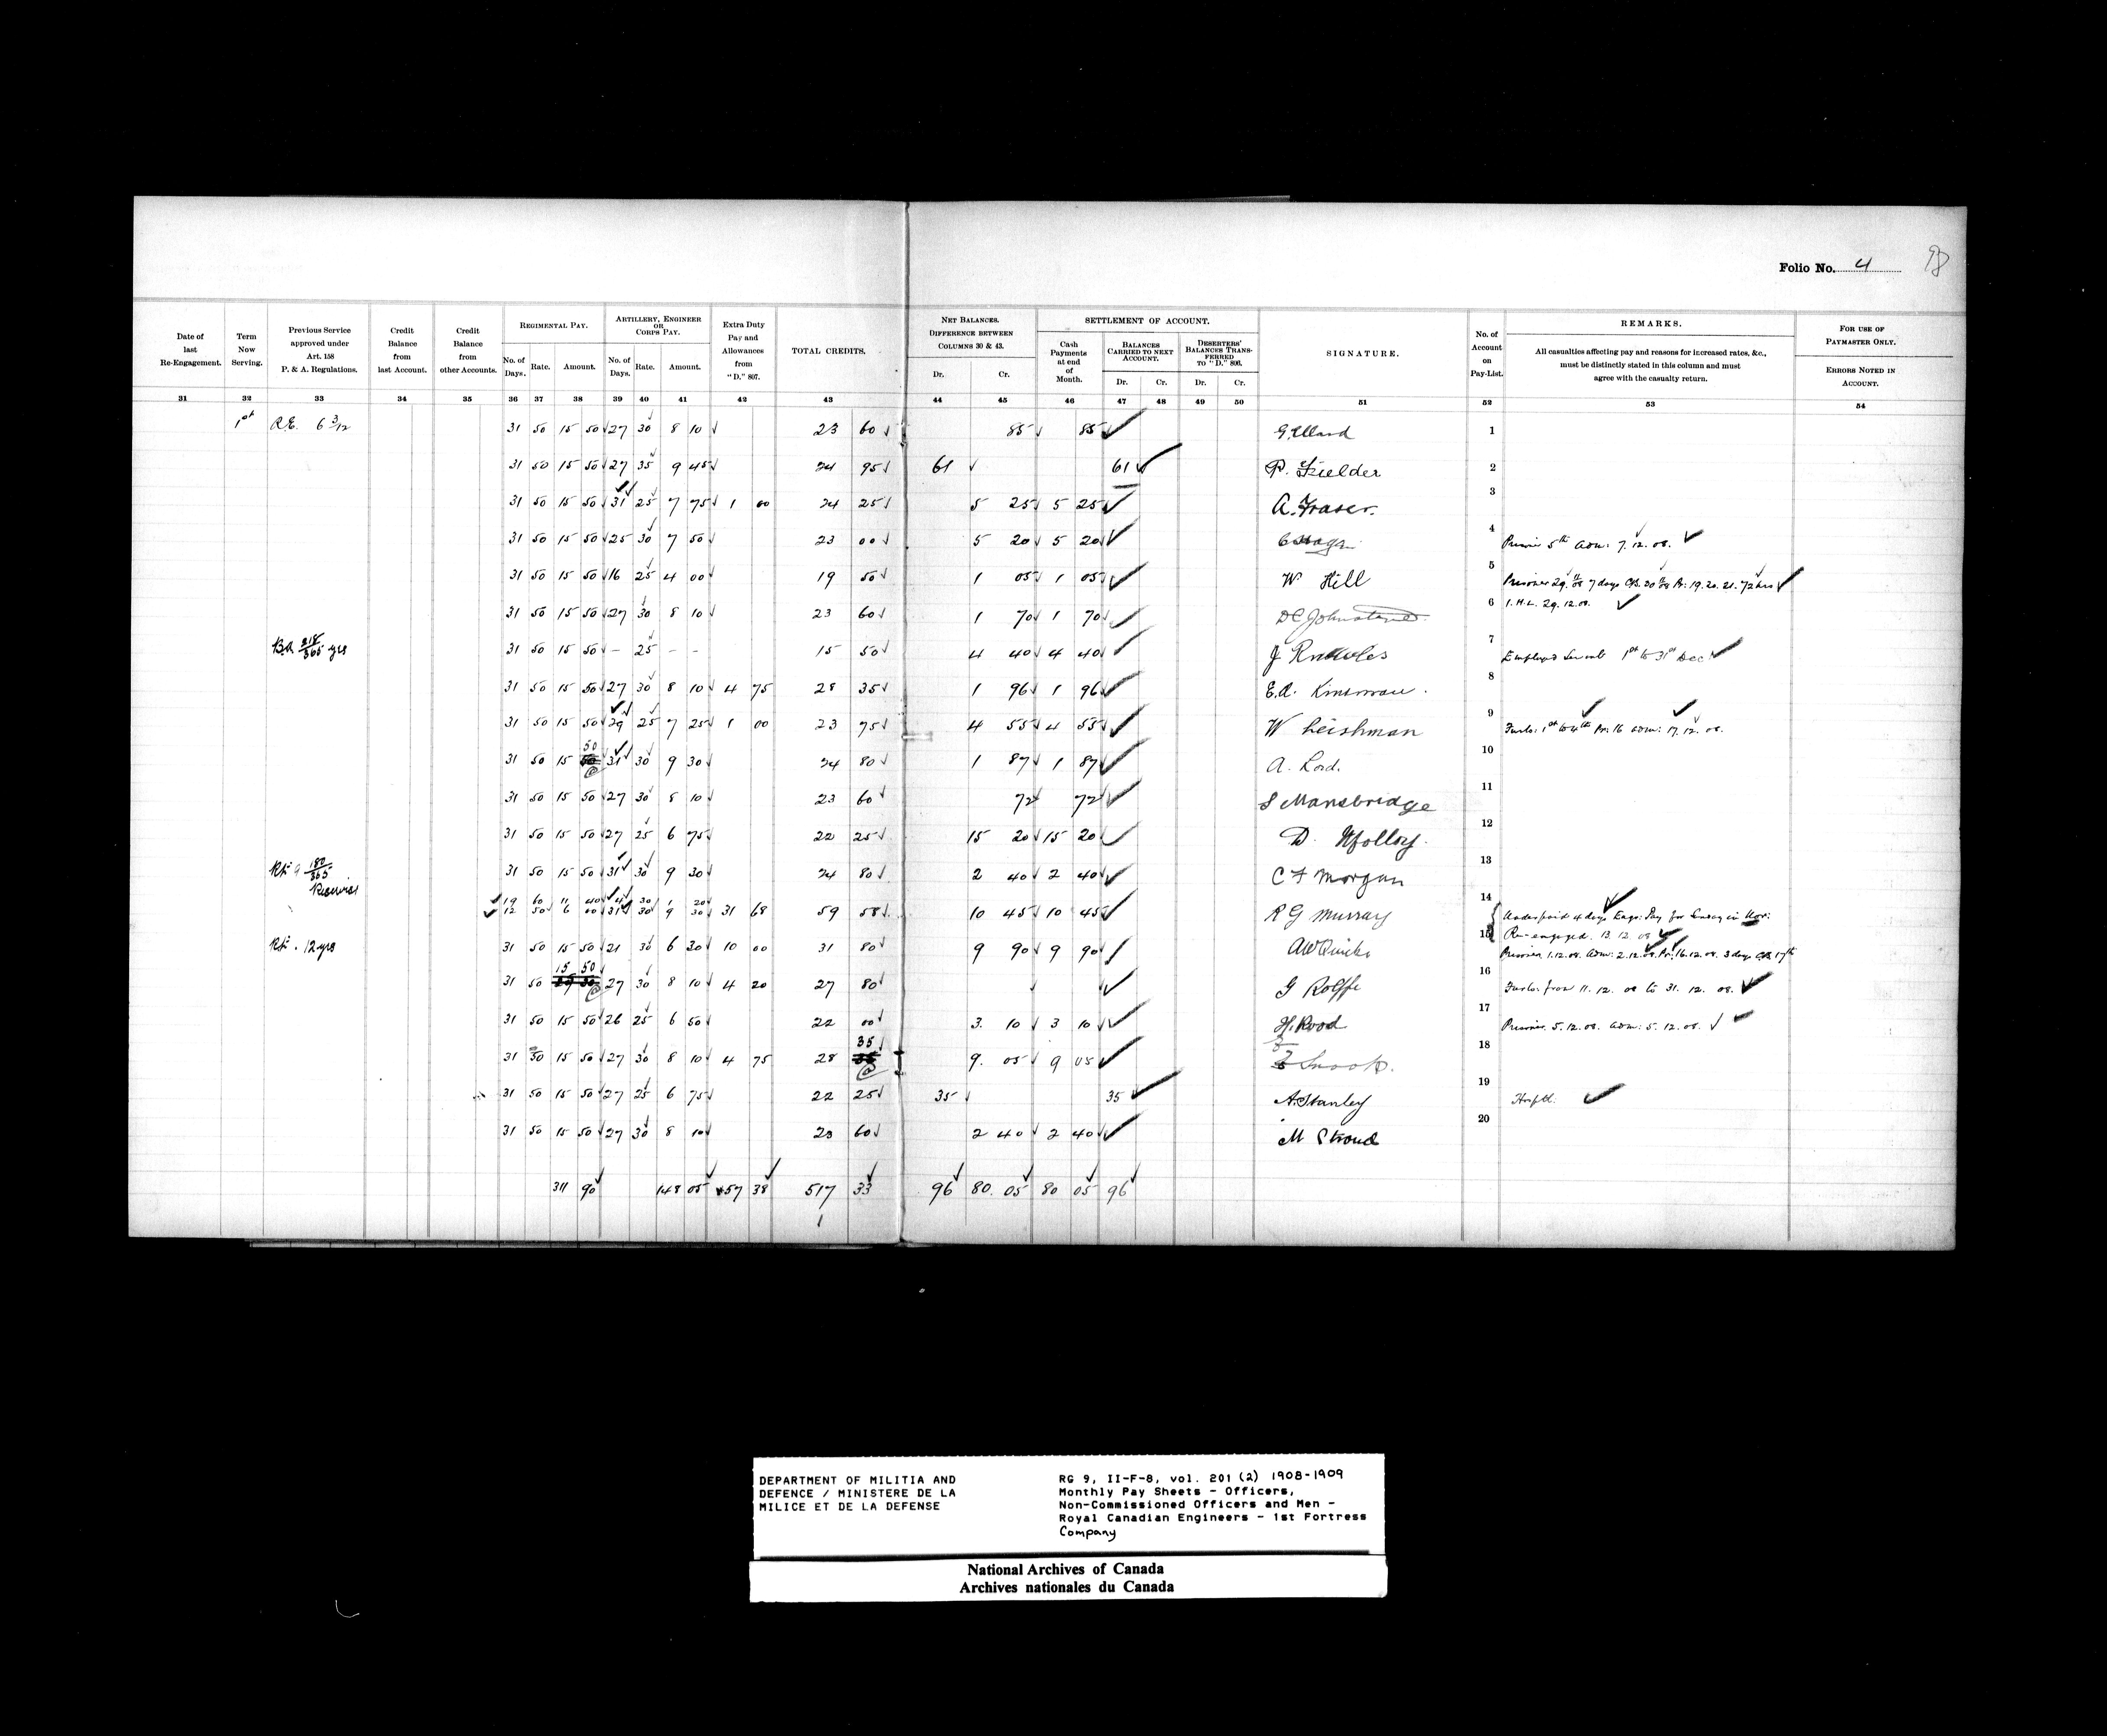 Folio No. 4
Date of last Re-Engagement. Term Now Serving. Previous Service approved under Art. 158 P. & A. Regulations. Credit Balance from last Account. Credit Balance from other Accounts. REGIMENTAL PAY. No. of Days. Rate. Amount. ARTILLERY, ENGINEER OR CORPS PAY. No. of Days. Rate. Amount. Extra Duty Pay and Allowances from "D." 807. TOTAL CREDITS. NET BALANCES. DIFFERENCE BETWEEN COLUMNS 30 & 43. Dr. Cr. SETTLEMENT OF ACCOUNT. Cash Payments at end of Month. BALANCES CARRIED TO NEXT ACCOUNT. Dr. Cr. DESERTERS' BALANCES TRANSFERRED TO "D." 808. Dr. Cr. SIGNATURE. No. of Account on Pay-List. REMARKS. All casualties affecting pay and reasons for increased rates, &c., must be distinctly stated in this column and must agree with the casualty return. FOR USE OF PAYMASTER ONLY. ERRORS NOTED IN ACCOUNT.
31 32 33 34 35 36 37 38 39 40 41 42 43 44 45 46 47 48 49 50 51 52 53 54
1st R.E. 6 3/12 31 50 15 50 27 30 8 10 23 60 85 85 1
31 50 15 50 27 35 9 45 24 95 61 61 P. Fielder 2
31 50 15 50 31 25 7 75 1 00 24 25 5 25 5 25 A. Fraser. 3
31 50 15 50 25 30 7 50 23 00 5 20 5 20 4 Prisoner 5th Adm: 7.12.08.
31 50 15 50 16 25 4 00 19 50 1 05 1 05 W Hill 5 Prisoner 29. 7 days CB. 19.20.21. 72 hrs
31 50 15 50 27 30 8 10 23 60 1 70 1 70 DC Johnstone 6 I.H.L. 29.12.08.
B.A. 218/365 yrs 31 50 15 50 – 25 – – 15 50 4 40 4 40 J Knowles 7 Employed Servant 1st to 31st Dec
31 50 15 50 27 30 8 10 4 75 28 35 1 96 1 96 E.A. Kinsman. 8
31 50 15 50 29 25 7 25 1 00 23 75 4 55 4 55 W Leishman 9 Furlo: 1st to 4th Pr: 16 Adm: 17.12.08.
31 50 15 50 31 30 9 30 24 80 1 87 1 87 A. Lord. 10
31 50 15 50 27 30 8 10 23 60 72 72 S Mansbridge 11
31 50 15 50 27 25 6 75 22 25 15 20 15 20 D. Molloy. 12
180/365 31 50 15 50 31 30 9 30 24 80 2 40 2 40 C F Morgan 13
19 60 11 40 4 30 1 20
12 50 6 00 31 30 9 30 31 68 59 58 10 45 10 45 R G Murray 14 Underpaid 4 days Engr: Pay for in Nov:
Re-engaged. 13.12.08
12 yrs 31 50 15 50 21 30 6 30 10 00 31 80 9 90 9 90 AW Quick 15 Prisoner 1.12.08. Adm: 2.12.08. Pr: 16.12.08. 3 days CB 17th
31 50 15 50 27 30 8 10 4 20 27 80 G Rolfe 16 Furlo: from 11.12.08 to 31.12.08.
31 50 15 50 26 25 6 50 22 00 3. 10 3 10 H. Rood 17 Prisoner 5.12.08. Adm: 5.12.08.
31 50 15 50 27 30 8 10 4 75 28 35 9. 05 9 05 Snook. 18
31 50 15 50 27 25 6 75 22 25 35 35 A. Stanley 19 Hosptl:
31 50 15 50 27 30 8 10 23 60 2 40 2 40 M Stroud 20
311 90 148 05 57 38 517 33 96 80. 05 80 05 96
DEPARTMENT OF MILITIA AND
DEFENCE / MINISTERE DE LA
MILICE ET DE LA DEFENSE
RG 9, II-F-8, vol. 201 (2) 1908-1909
Monthly Pay Sheets - Officers,
Non-Commissioned Officers and Men -
Royal Canadian Engineers - 1st Fortress
Company
National Archives of Canada
Archives nationales du Canada